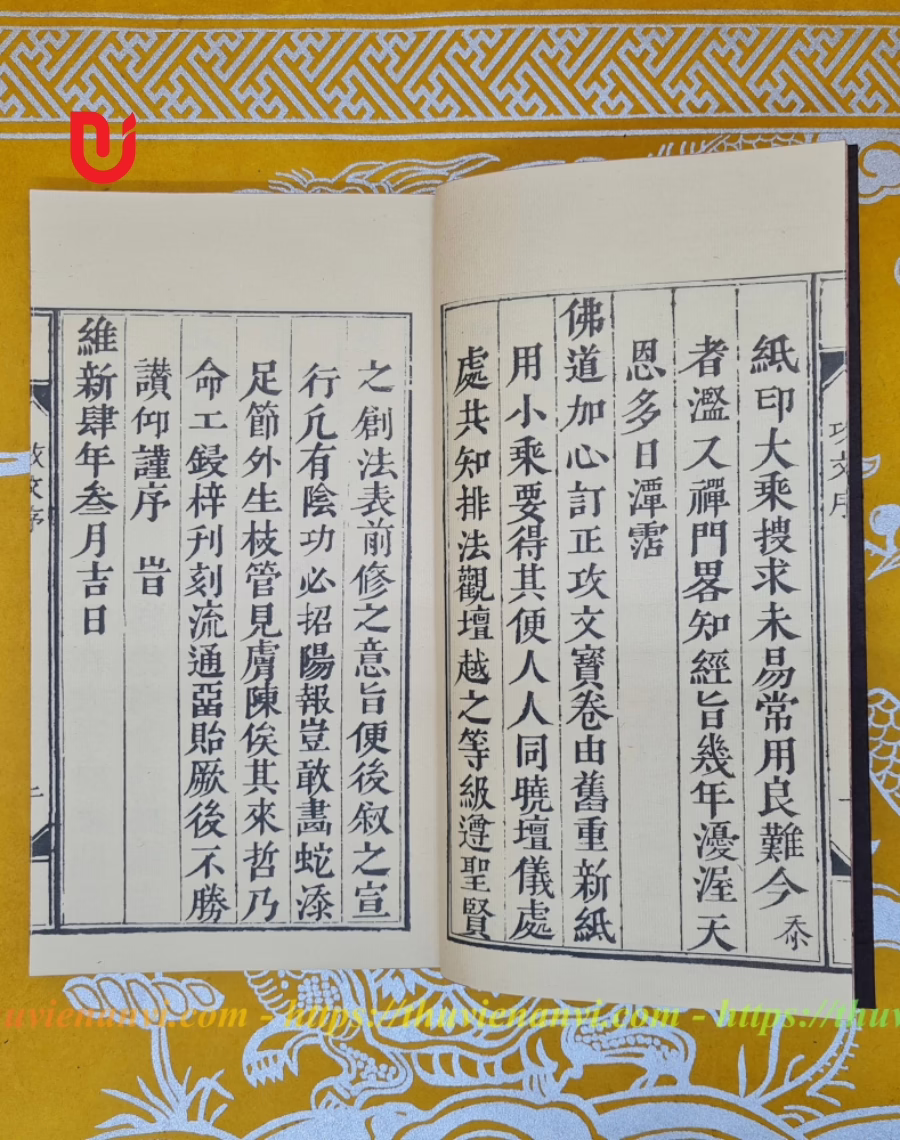 紙印大乘搜求未易常用良難今忝
者濫又禪門畧知經旨幾年優渥天
恩多日潭霑
佛道加心訂正攻文寶卷由舊重新紙
用小乘要得其便人人同曉壇儀處
處共知排法觀壇越之等級遵聖賢
之創法表前修之意旨便後叙之宣
行凢有陰功必招陽報豈敢畵蛇添
足節外生枝管見膚陳俟其來哲乃
命工鋟梓刊刻流通啚貽厥後不勝
讃仰謹序 旹
維新肆年叁月吉日
攻文序
uvienanvi.com - https://thuvienanvi.com - https://thuv